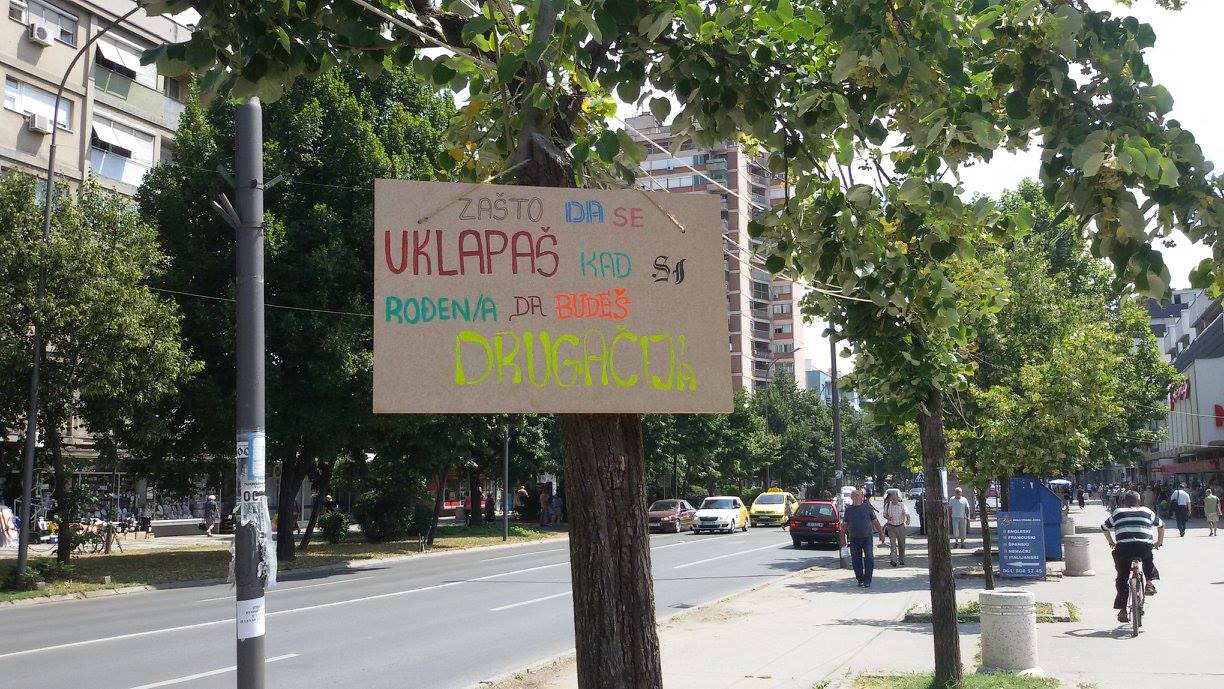 ZAŠTO DA SE
UKLAPAŠ KAD SI
ROĐEN/A DA BUDEŠ
DRUGAČIJ/A
ENGLESKI
FRANCUSKI
ŠPANSKI
NEMAČKI
ITALIJANSKI